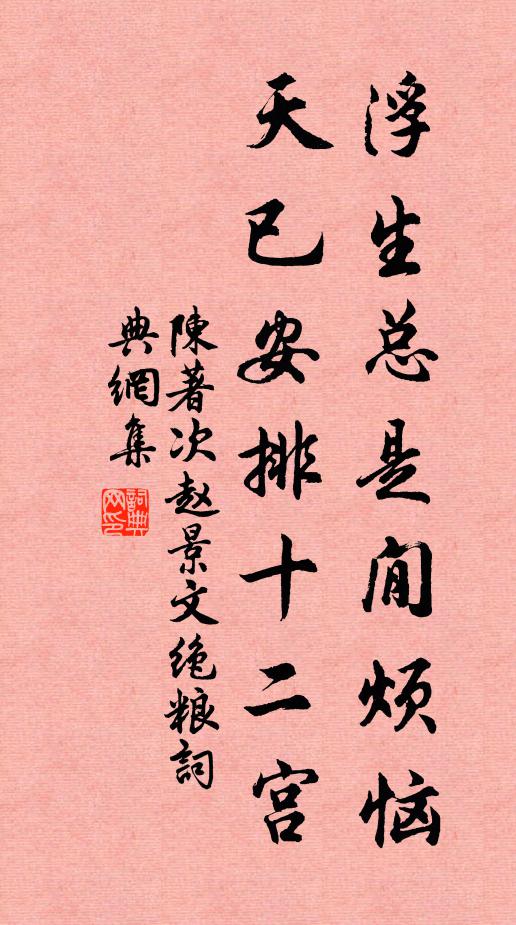 浮生总是闲烦恼
天已安排十二宫
陳著次赵景文绝粮詞
典網集
詞典網印